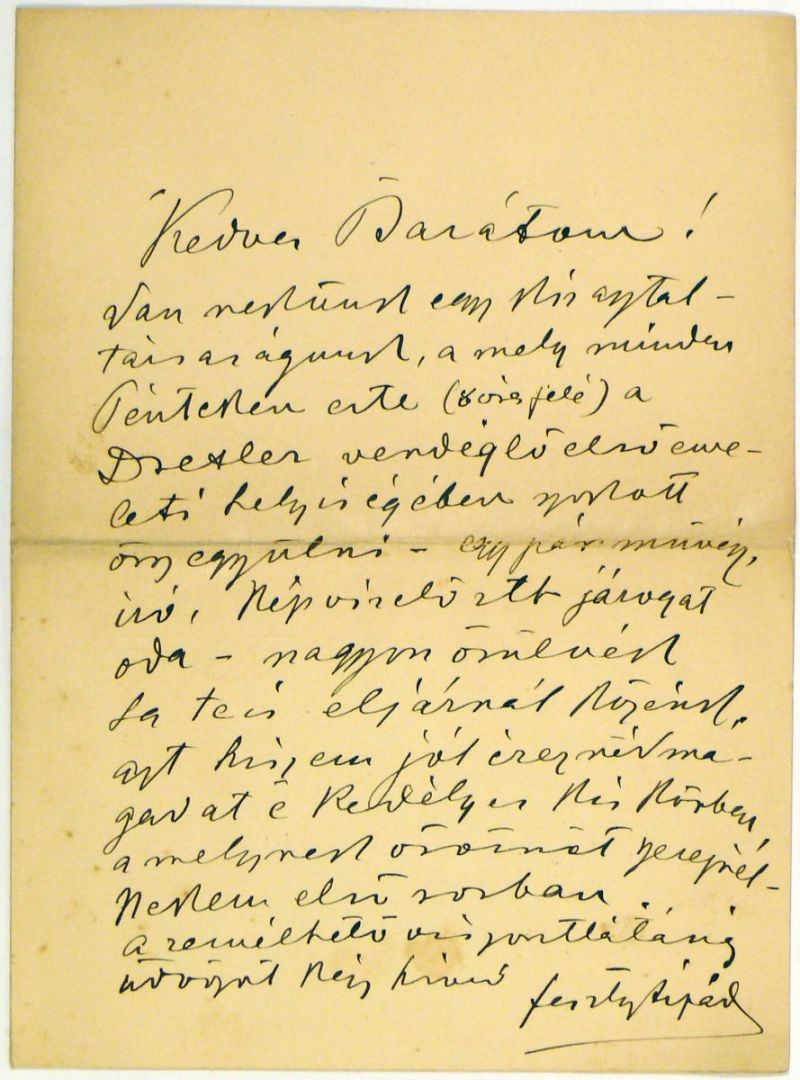 Kedves Barátom!
Van nekünk egy kis asztal-
társaságunk, a mely minden
Pénteken este (8 óra felé) a
Drexler vendéglő első eme-
leti helyiségében szokott
összegyülni – egy pár művész,
író, képviselő stb járogat
oda – nagyon örülnénk
ha te is eljárnál közénk,
azt hiszem jól éreznéd ma-
gadat é kedélyes kis körben,
a melynek örömöt szereznél –
Nekem első sorban.
a remélhető viszontlátásig
üdvözöl kész híved
Feszty Árpád